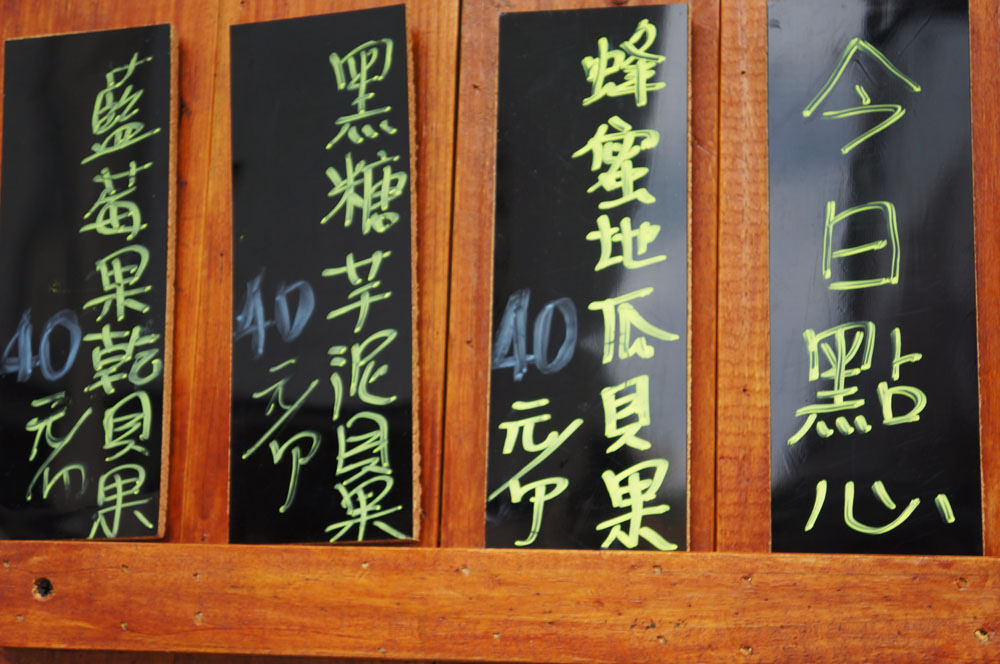 今日點心
蜂蜜地瓜貝果
40元/
黑糖芋泥貝果
40元/
藍莓果乾貝果
40元/